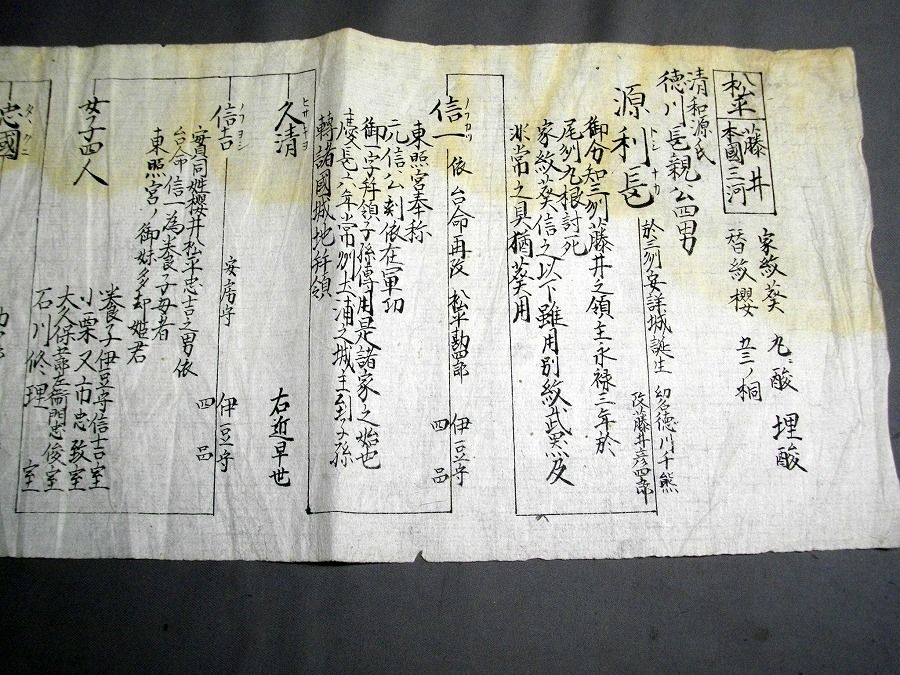 松平
藤井
本國三河
家紋葵 丸ニ酸 埋酸
替紋櫻 五三ノ桐
清和源氏
徳川長親公四男
源利長
トシナカ
於三州安祥城誕生 幼名徳川千熊
改藤井彦四郎
御分知三州藤井之領主永禄三年於
尾州九根討死
家紋葵信之以下雖用別紋武器及
非常之具猶葵用
信一
ノフカツ
依 台命再改 松平勘四郎 伊豆守
四品
東照宮奉称
元信公刻依在軍功
御一字拝領子孫傳用是諸家之始也
慶長六年常州土浦之城主到子孫
轉諸國城地拝領
久清
ヒサキヨ
右近早世
信吉
ノフヨシ
安房守 伊豆守
四品
實同姓櫻井松平忠吉之男依
台命信一為夫養子母者
東照宮ノ御妹多却姫君
女子四人
養子伊豆守信吉室
小栗又市忠政室
大久保荒郎左衛門忠俊室
石川修理 室
忠國
タヽクニ